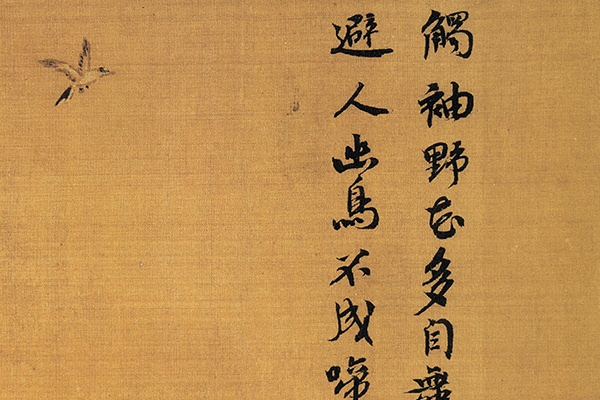 觸袖野花多自舞
避人幽鳥不成啼